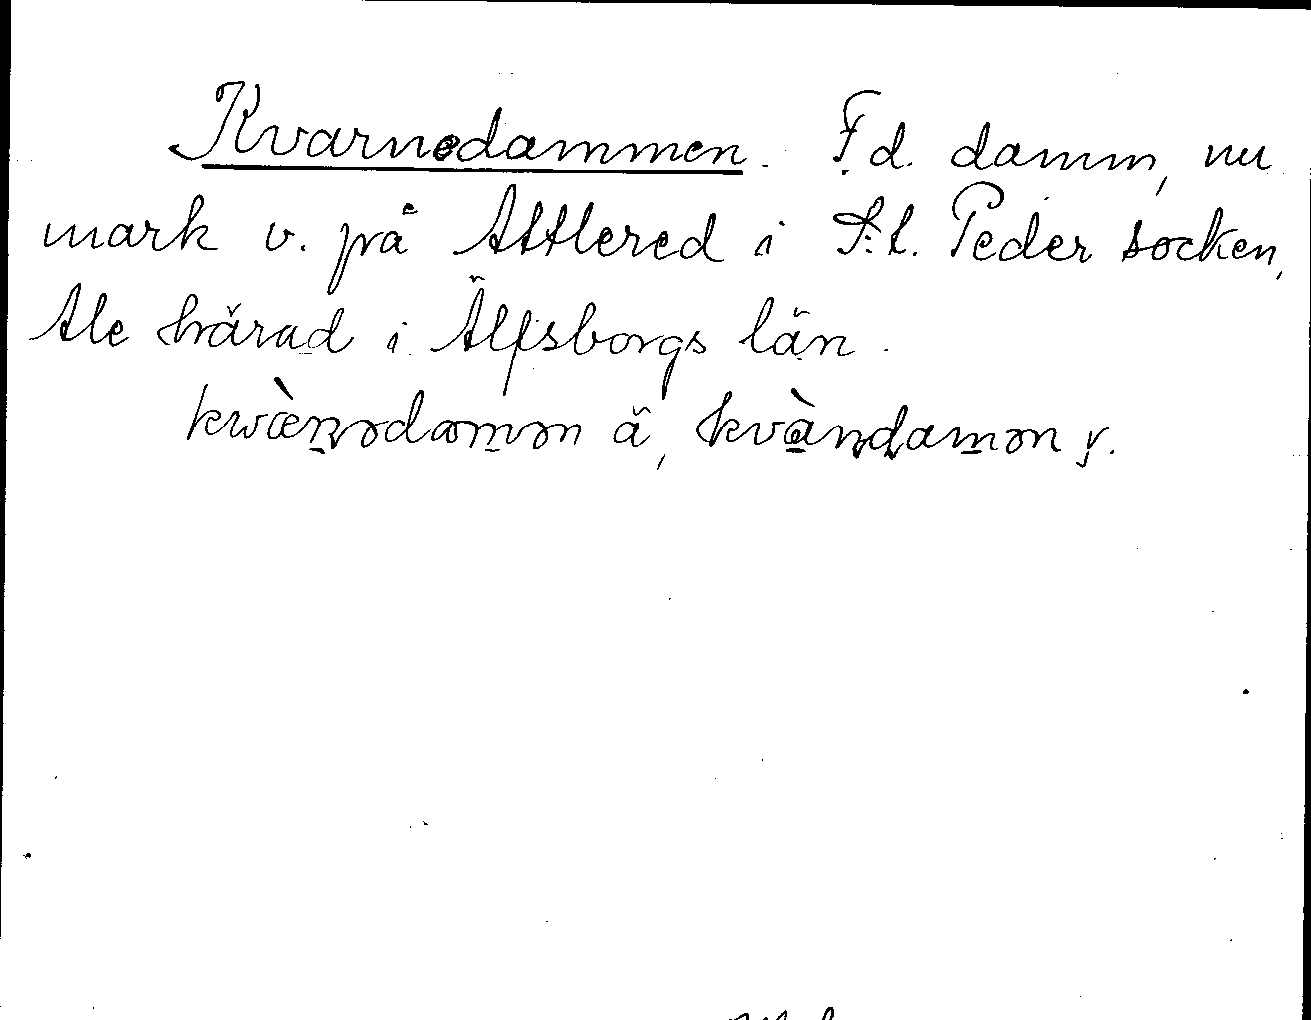 Kvarnedammen. F.d. damm, nu
mark v. på Attlered i S:t. Peder socken,
Ale härad i Älfsborgs län.
kwæ̀ṉədam̱ən ä, kvàṉdam̱ən y.